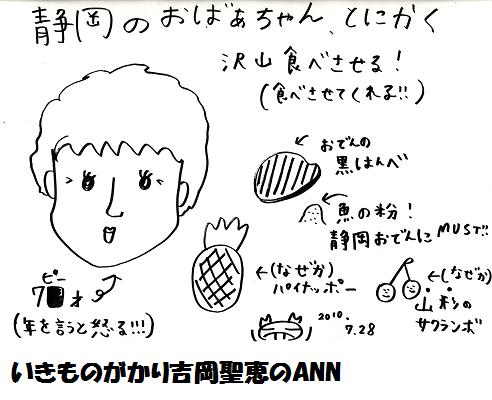 静岡のおばぁちゃん、とにかく
沢山食べさせる!
(食べさせてくれる!!)
おでんの
黒はんぺ
魚の粉!
静岡おでんにMUST!!
←(なぜか)
パイナッポー
←(なぜか)
山形の
サクランボ
ピー
7■才
(年を言うと怒る!!!)
2010.
7.28
いきものがかり吉岡聖恵のANN